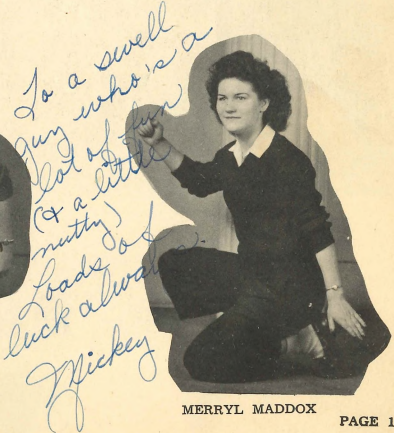 To a swell
guy who's a
lot of fun
(& a little
nutty)
Loads of
luck always
Mickey
MERRYL MADDOX
PAGE 1